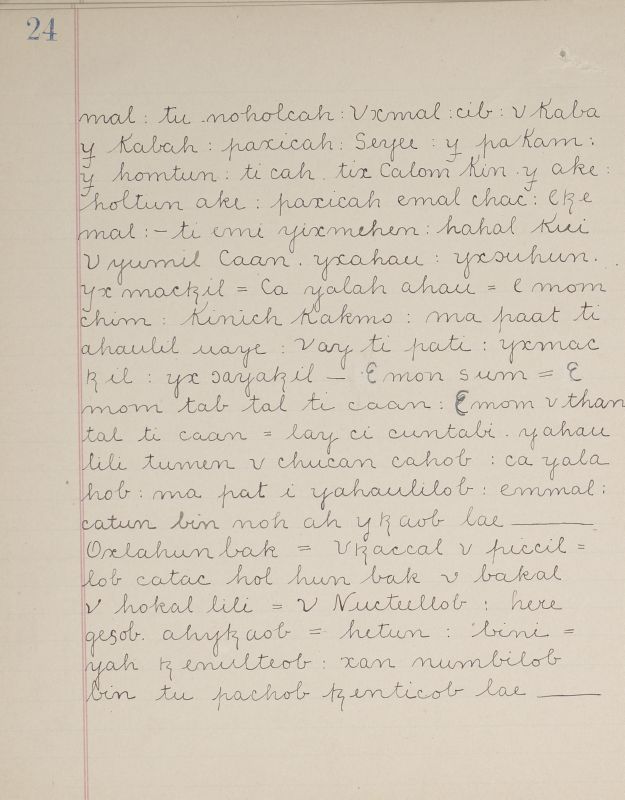 24
mal : tu noholcah : Vxmal : cib : v Kaba
y Kabah : paxicah : Seyee : y pakam :
y homtun : ti cah tix Calom Kin y ake :
holtun ake : paxicah emal chac : Cꜩe
mal : - ti emi yixmehen : hahal Kui
V yumil Caan . yxahau : yxsuhun .
yx macꜩil = Ca yalah ahau = E mom
chim : Kinich Kakmo : ma paat ti
ahaulil uaye : Vay ti pati : yxmac
ꜩil : yx ɔayaꜩil — Emon sum = E
mom tab tal ti caan : Emom v than
tal ti caan = lay ci cuntabi . yahau
lili tumen v chucan cahob : ca yala
hob : ma pat i yahaulilob : emmal :
catun bin noh ah yꜩaob lae ———
Oxlahun bak = Vꜩaccal v piccil =
lob catac hol hun bak v bakal
v hokal lili = V Nucteellob : here
gesob . ahyꜩaob = hetun : bini =
yah ꜩenulteob : xan numbilob
bin tu pachob ꜩenticob lae ———